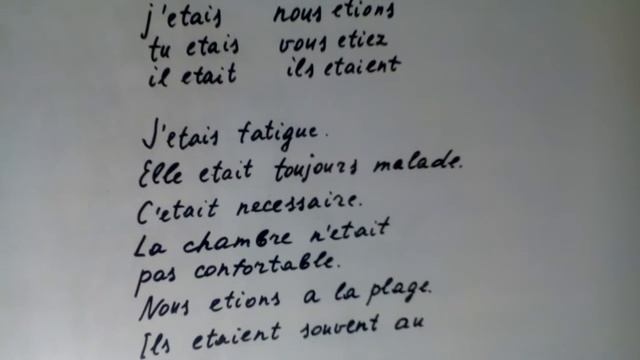 j'etais nous etions
tu etais vous etiez
il etait ils etaient
J'etais fatigue.
Elle etait toujours malade.
C'etait necessaire.
La chambre n'etait
pas confortable.
Nous etions a la plage.
Ils etaient souvent au